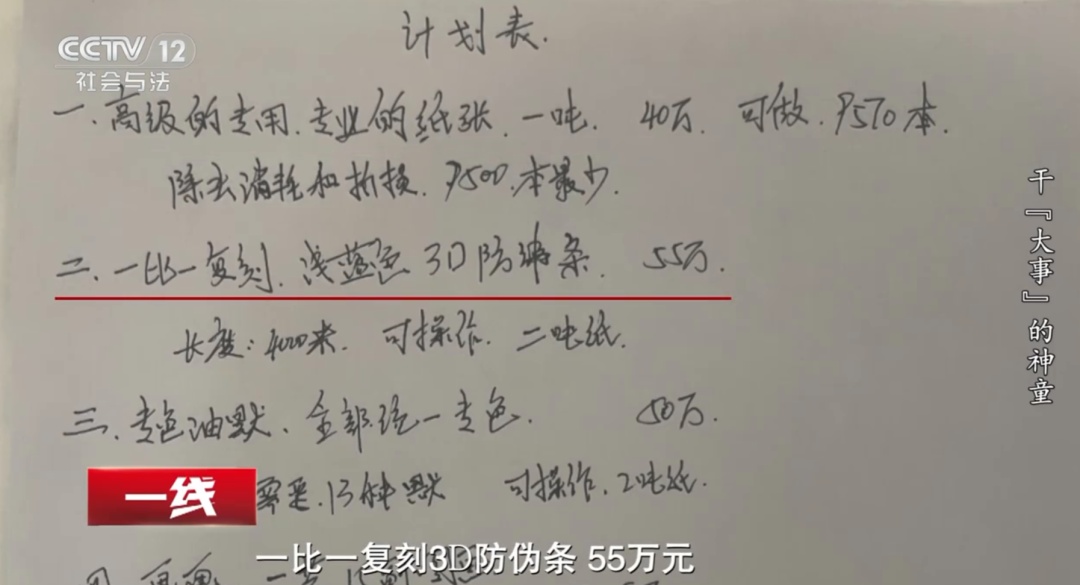 计划表.
CCTV 12
社会与法
一、高级的专用、专业的纸张、一吨. 40万. 可做.
除去消耗和折损.
二、一比一复刻、浅蓝色 3D防 条. 55万.
长度:4000米. 可操作. 二吨纸.
三、专色油默、全部统一专色. 50万.
13种默 可操作、2吨纸.
四、
一线
一比一复刻3D防伪条 55万元
干『大事』的神童